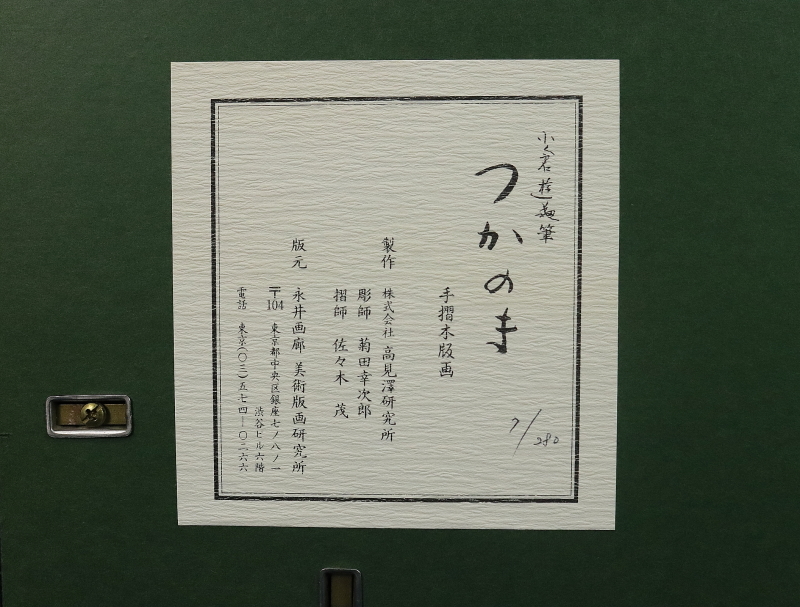 小倉遊亀筆
つかのま
7/280
手摺木版画
製作 株式会社 高見澤研究所
彫師 菊田幸次郎
摺師 佐々木 茂
版元 永井画廊 美術版画研究所
〒104 東京都中央区銀座七ノ八ノ一
渋谷ビル六階
電話 東京(〇三)五七四一〇二六六